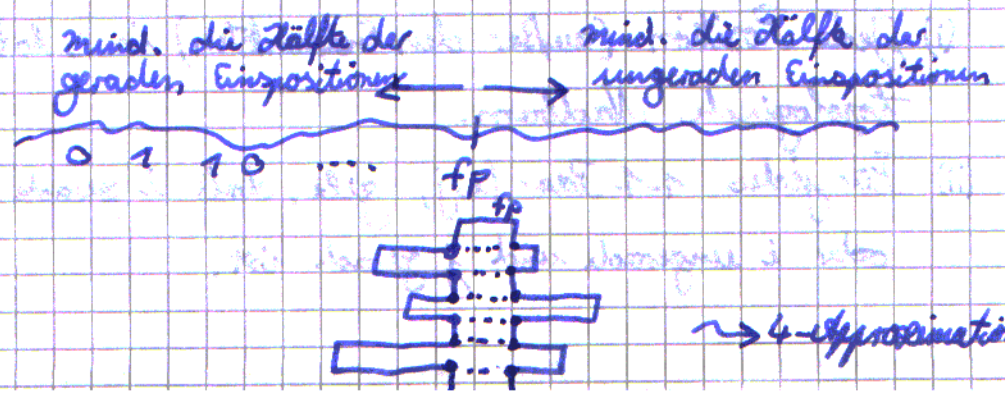 mind. die Hälfte der
geraden Einspositionen
mind. die Hälfte der
ungeraden Einspositionen
0 1 1 0 ....
fp
fp
4-Approximatio